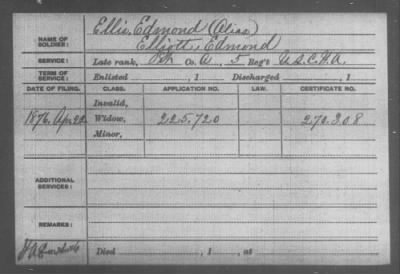 Ellis, Edmond (Alias)
NAME OF SOLDIER: Elliott, Edmond
SERVICE: Late rank, Co. A, 5 Reg't U.S.C.H.A.
TERM OF SERVICE: Enlisted , 1 Discharged , 1
DATE OF FILING. CLASS. APPLICATION NO. LAW. CERTIFICATE NO.
Invalid,
1876, Apr. 22 Widow, 225.720 270.308
Minor,
ADDITIONAL SERVICES:
REMARKS:
Died , 1 , at